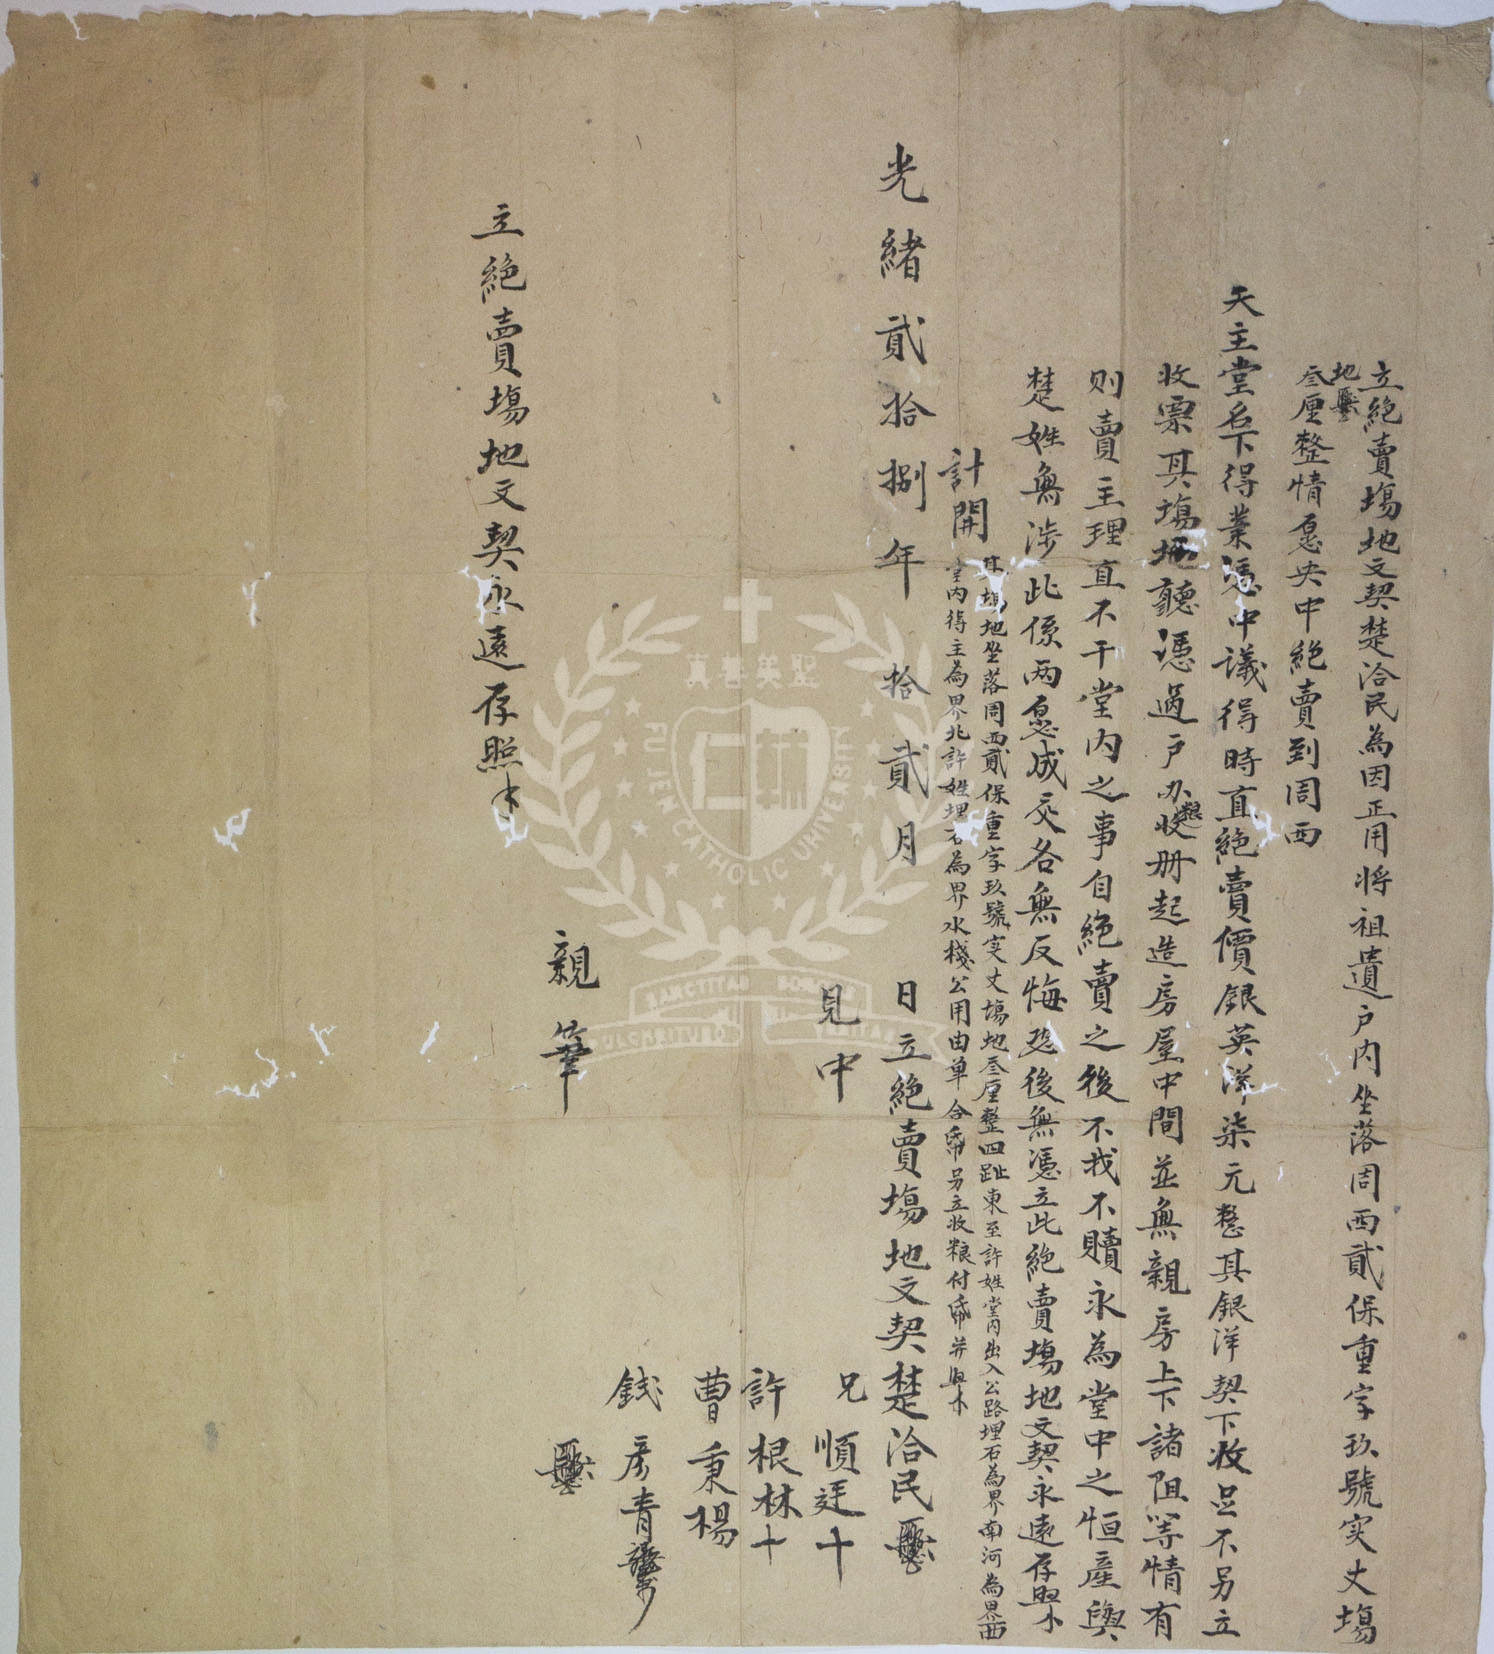 立絕賣塲地文契楚洽民為因正用將祖遺戶內坐落周西貳保重字玖號实丈塲
地
叁厘整情愿央中絕賣到周西
天主堂名下得業憑中議得時直絕賣價銀英洋柒元整其銀洋契下收足不另立
收票其塲地聽憑過戶办收册起造房屋中間並無親房上下諸阻等情有
则賣主理直不干堂内之事自絕賣之後不找不贖永為堂中之恒產與
楚姓無涉此係两愿成交各無反悔恐後無憑立此絕賣塲地文契永遠存照
計開
其塲地坐落周西貳保重字玖號实丈塲地叁厘整四趾東至許姓堂内出入公路埋石為界南河為界西
堂内得主為界北許姓埋石為界水棧公用由单合帋另立收粮付帋并照
光緒貳拾捌年拾貳月 日立絕賣塲地文契楚洽民
見中
兄順廷十
許根林十
曹秉楊
錢彦青
親筆
立絕賣塲地文契永遠存照
聖美善真
FU JEN CATHOLIC UNIVERSITY
SANCTITAS BONITAS
PULCHRITUDO VERITAS